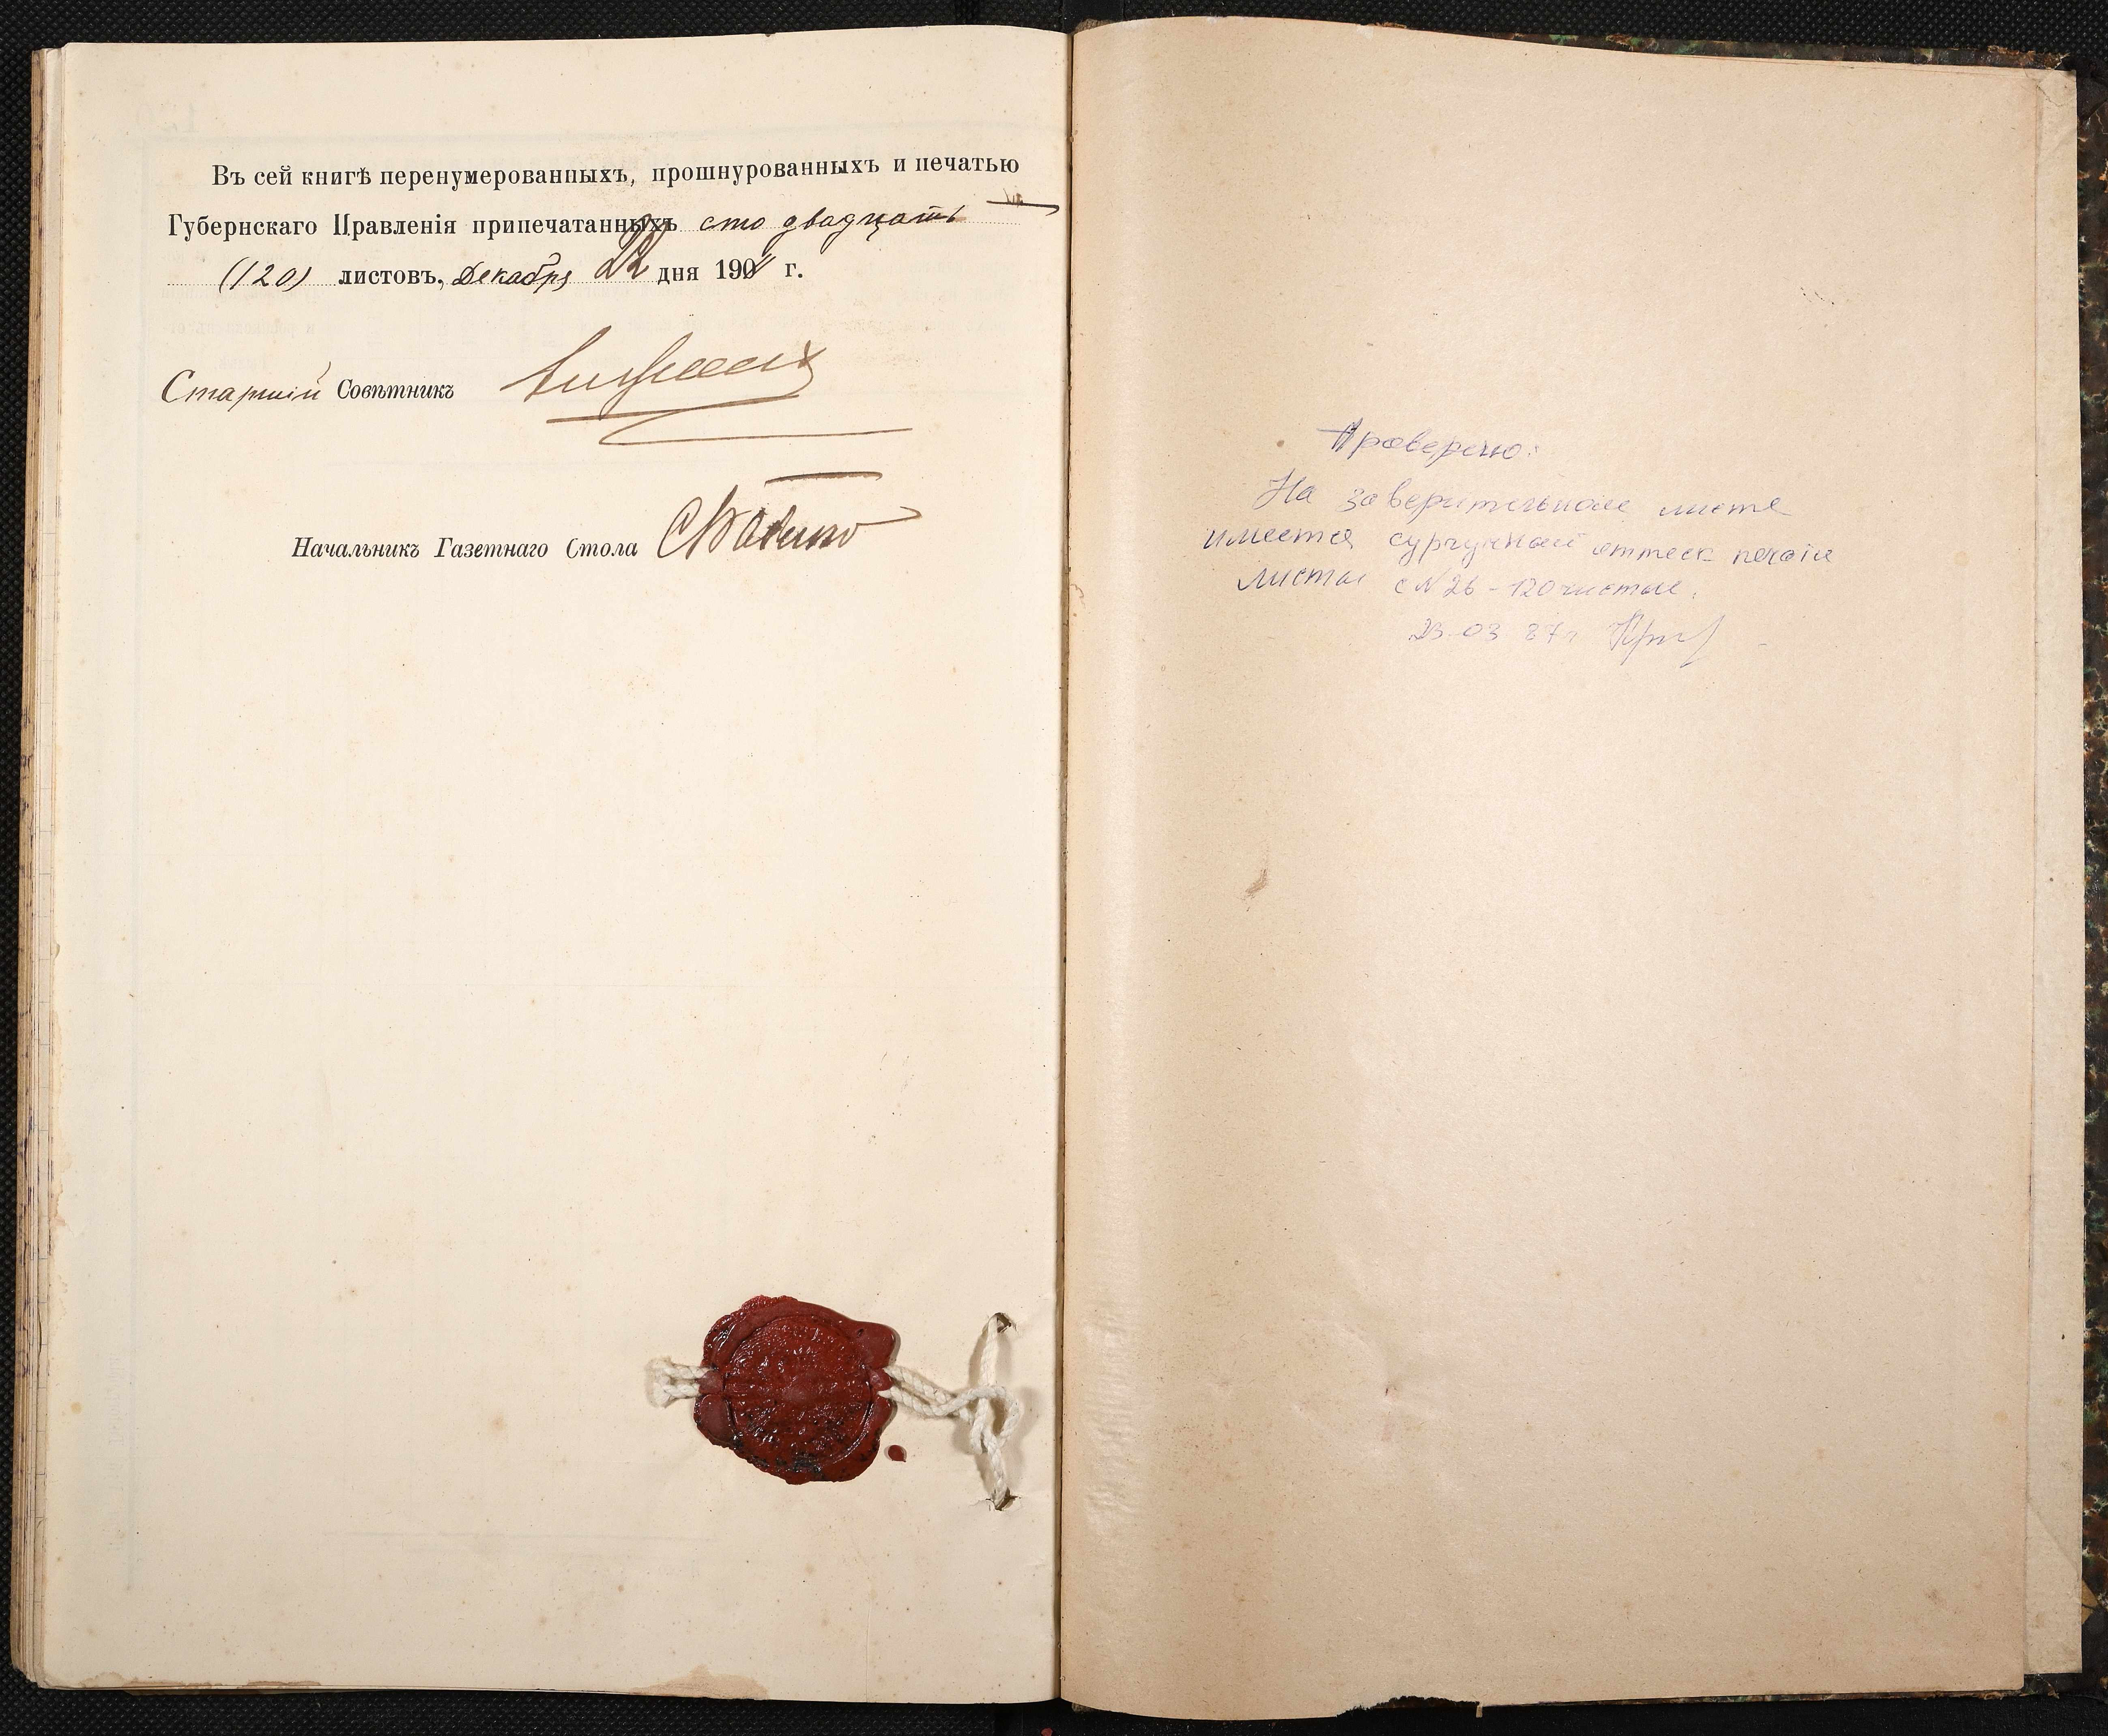 Въ сей книгѣ перенумерованныхъ, прошнурованныхъ и печатью
Губернскаго Правленія припечатанныхъ сто двадцать
(120) листовъ, Декабря 22 дня 190 г.
Старшій Совѣтникъ
Начальникъ Газетнаго Стола
Проверено:
На заверительном листе
имеется сургучный оттеск печати
листы с N 26 - 120 чистые.
23-03 87г